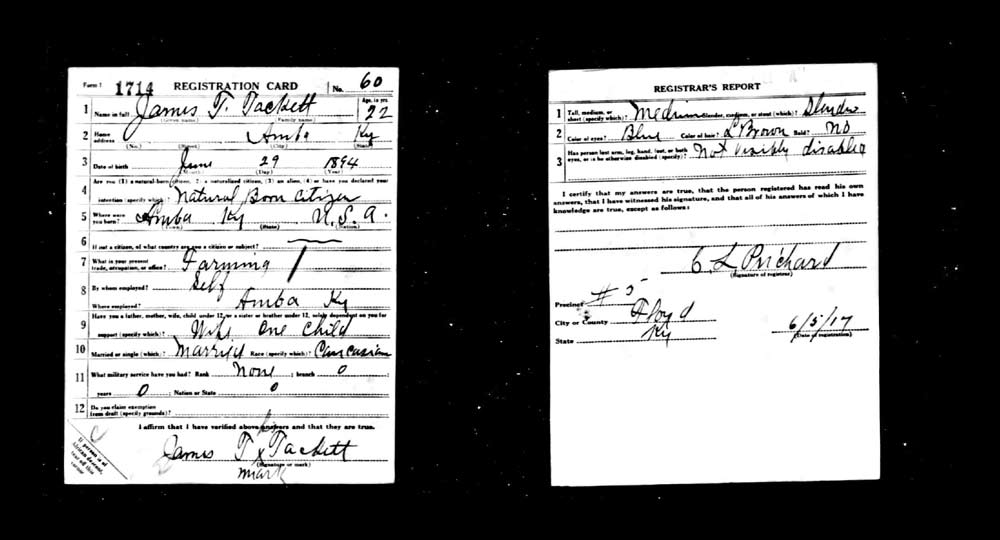 Form 1 1714 REGISTRATION CARD No. 60
1 Name in full James T. Tackett Age, in yrs. 22
(Given name) (Family name)
2 Home address Amba Ky
(No.) (Street) (City) (State)
3 Date of birth June 29 1894
(Month) (Day) (Year)
4 Are you (1) a natural-born citizen, (2) a naturalized citizen, (3) an alien, (4) or have you declared your
intention (specify which)? Natural Born Citizen
5 Where were you born? Amba Ky U.S.A.
(Town) (State) (Nation)
6 If not a citizen, of what country are you a citizen or subject?
7 What is your present trade, occupation, or office? Farming
8 By whom employed? Self
Where employed? Amba Ky
9 Have you a father, mother, wife, child under 12, or a sister or brother under 12, solely dependent on you for
support (specify which)? Wife One Child
10 Married or single (which)? Married Race (specify which)? Caucasian
11 What military service have you had? Rank None ; branch 0 ;
years 0 ; Nation or State 0
12 Do you claim exemption from draft (specify grounds)?
I affirm that I have verified above answers and that they are true.
James T x Tackett
(Signature or mark)
mark
If person is of
African descent,
tear off this
corner
REGISTRAR'S REPORT
1 Tall, medium, or short (specify which)? Medium Slender, medium, or stout (which)? Slender
2 Color of eyes? Blue Color of hair? L Brown Bald? No
3 Has person lost arm, leg, hand, foot, or both
eyes, or is he otherwise disabled (specify)? Not visibly disabled
I certify that my answers are true, that the person registered has read his own
answers, that I have witnessed his signature, and that all of his answers of which I have
knowledge are true, except as follows:
C. L. Prichard
(Signature of registrar)
Precinct # 5
City or County Floyd
State Ky 6/5/17
(Date of registration)